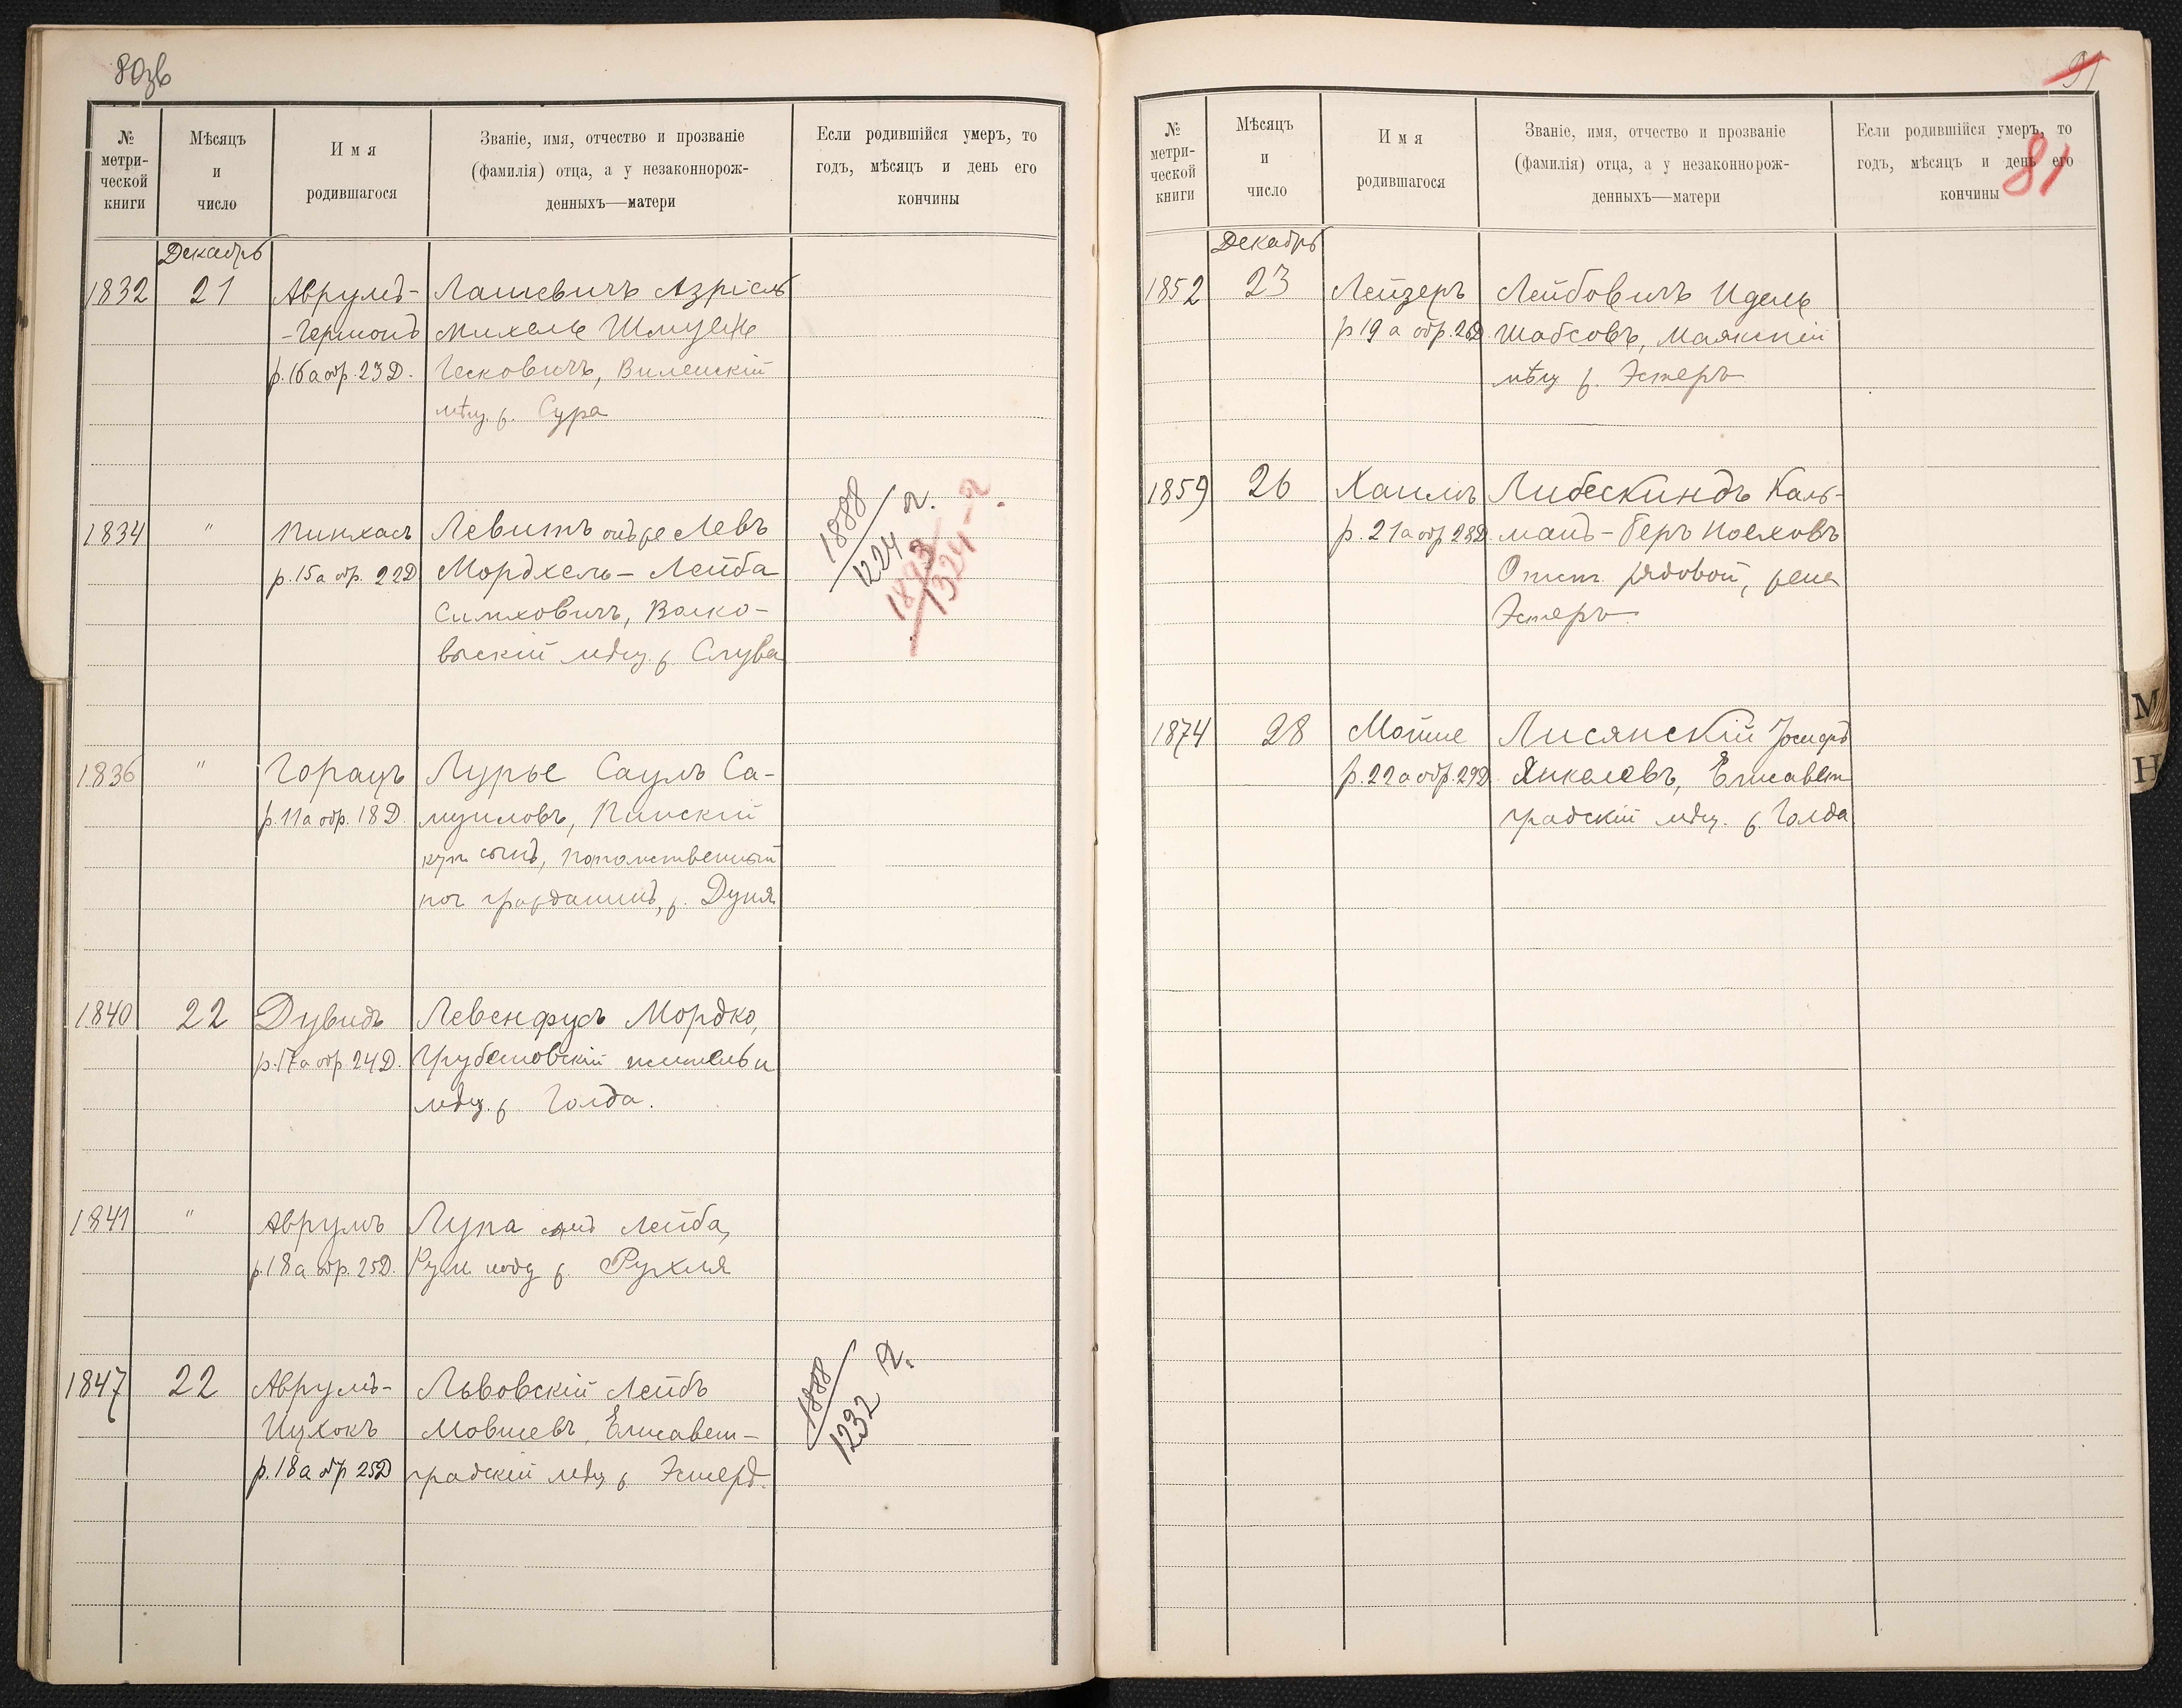 80зв
№ метрической книги
Мѣсяцъ и число
Имя родившагося
Званіе, имя, отчество и прозваніе
(фамилія) отца, а у незаконнорож-
денныхъ—матери
Если родившійся умеръ, то
годъ, мѣсяцъ и день его
кончины
Декабрь
1832 21 Аврумъ- Лашевичъ Азріель
-Гершонъ Михель Шмуель
р. 16 а обр. 23 Д. Гесковичъ, Виленскій
мѣщ. ж. Сура
1834 " Пинхасъ Левитъ онъ же Левъ
р. 15 а обр. 22 Д Мордхель-Лейба
Симховичъ, Волко-
выскій мѣщ. ж. Слува
1888/1224 р.
1893/1324 - р.
1836 " Горацъ Лурье Саулъ Са-
р. 11 а обр. 18 Д. муиловъ, Пинскій
куп сынъ, потомственный
поч гражданинъ, ж. Дуня
1840 22 Дувидъ Левенфусъ Мордко,
р. 17 а обр. 24 Д. Грубешовскій житель и
мѣщ. ж Голда.
1841 " Аврумъ Лупа Лейба,
р. 18 а обр. 25 Д. Рум подд ж. Рухля
1847 22 Аврумъ- Львовскій Лейбъ
Ицхокъ Мовшевъ, Елисавет-
р. 18 а обр 25 Д градскій мѣщ ж Эстеръ.
1888/1232 р.
91
81
№ метрической книги
Мѣсяцъ и число
Имя родившагося
Званіе, имя, отчество и прозваніе
(фамилія) отца, а у незаконнорож-
денныхъ—матери
Если родившійся умеръ, то
годъ, мѣсяцъ и день его
кончины
Декабрь
1852 23 Лейзеръ Лейбовичъ Идель
р 19 а обр. 26 Д Шабсовъ, Маякскій
мѣщ ж. Эстеръ
1859 26 Хаимъ Либескиндъ Каль-
р. 21 а обр 28 Д. манъ-Беръ Ноеховъ
Отст. рядовой, жена
Эстеръ.
1874 28 Мойше Лисянскій Іосифъ
р. 22 а обр. 29 Д. Янкелевъ, Елисавет
градскій мѣщ. ж. Голда
М
Н